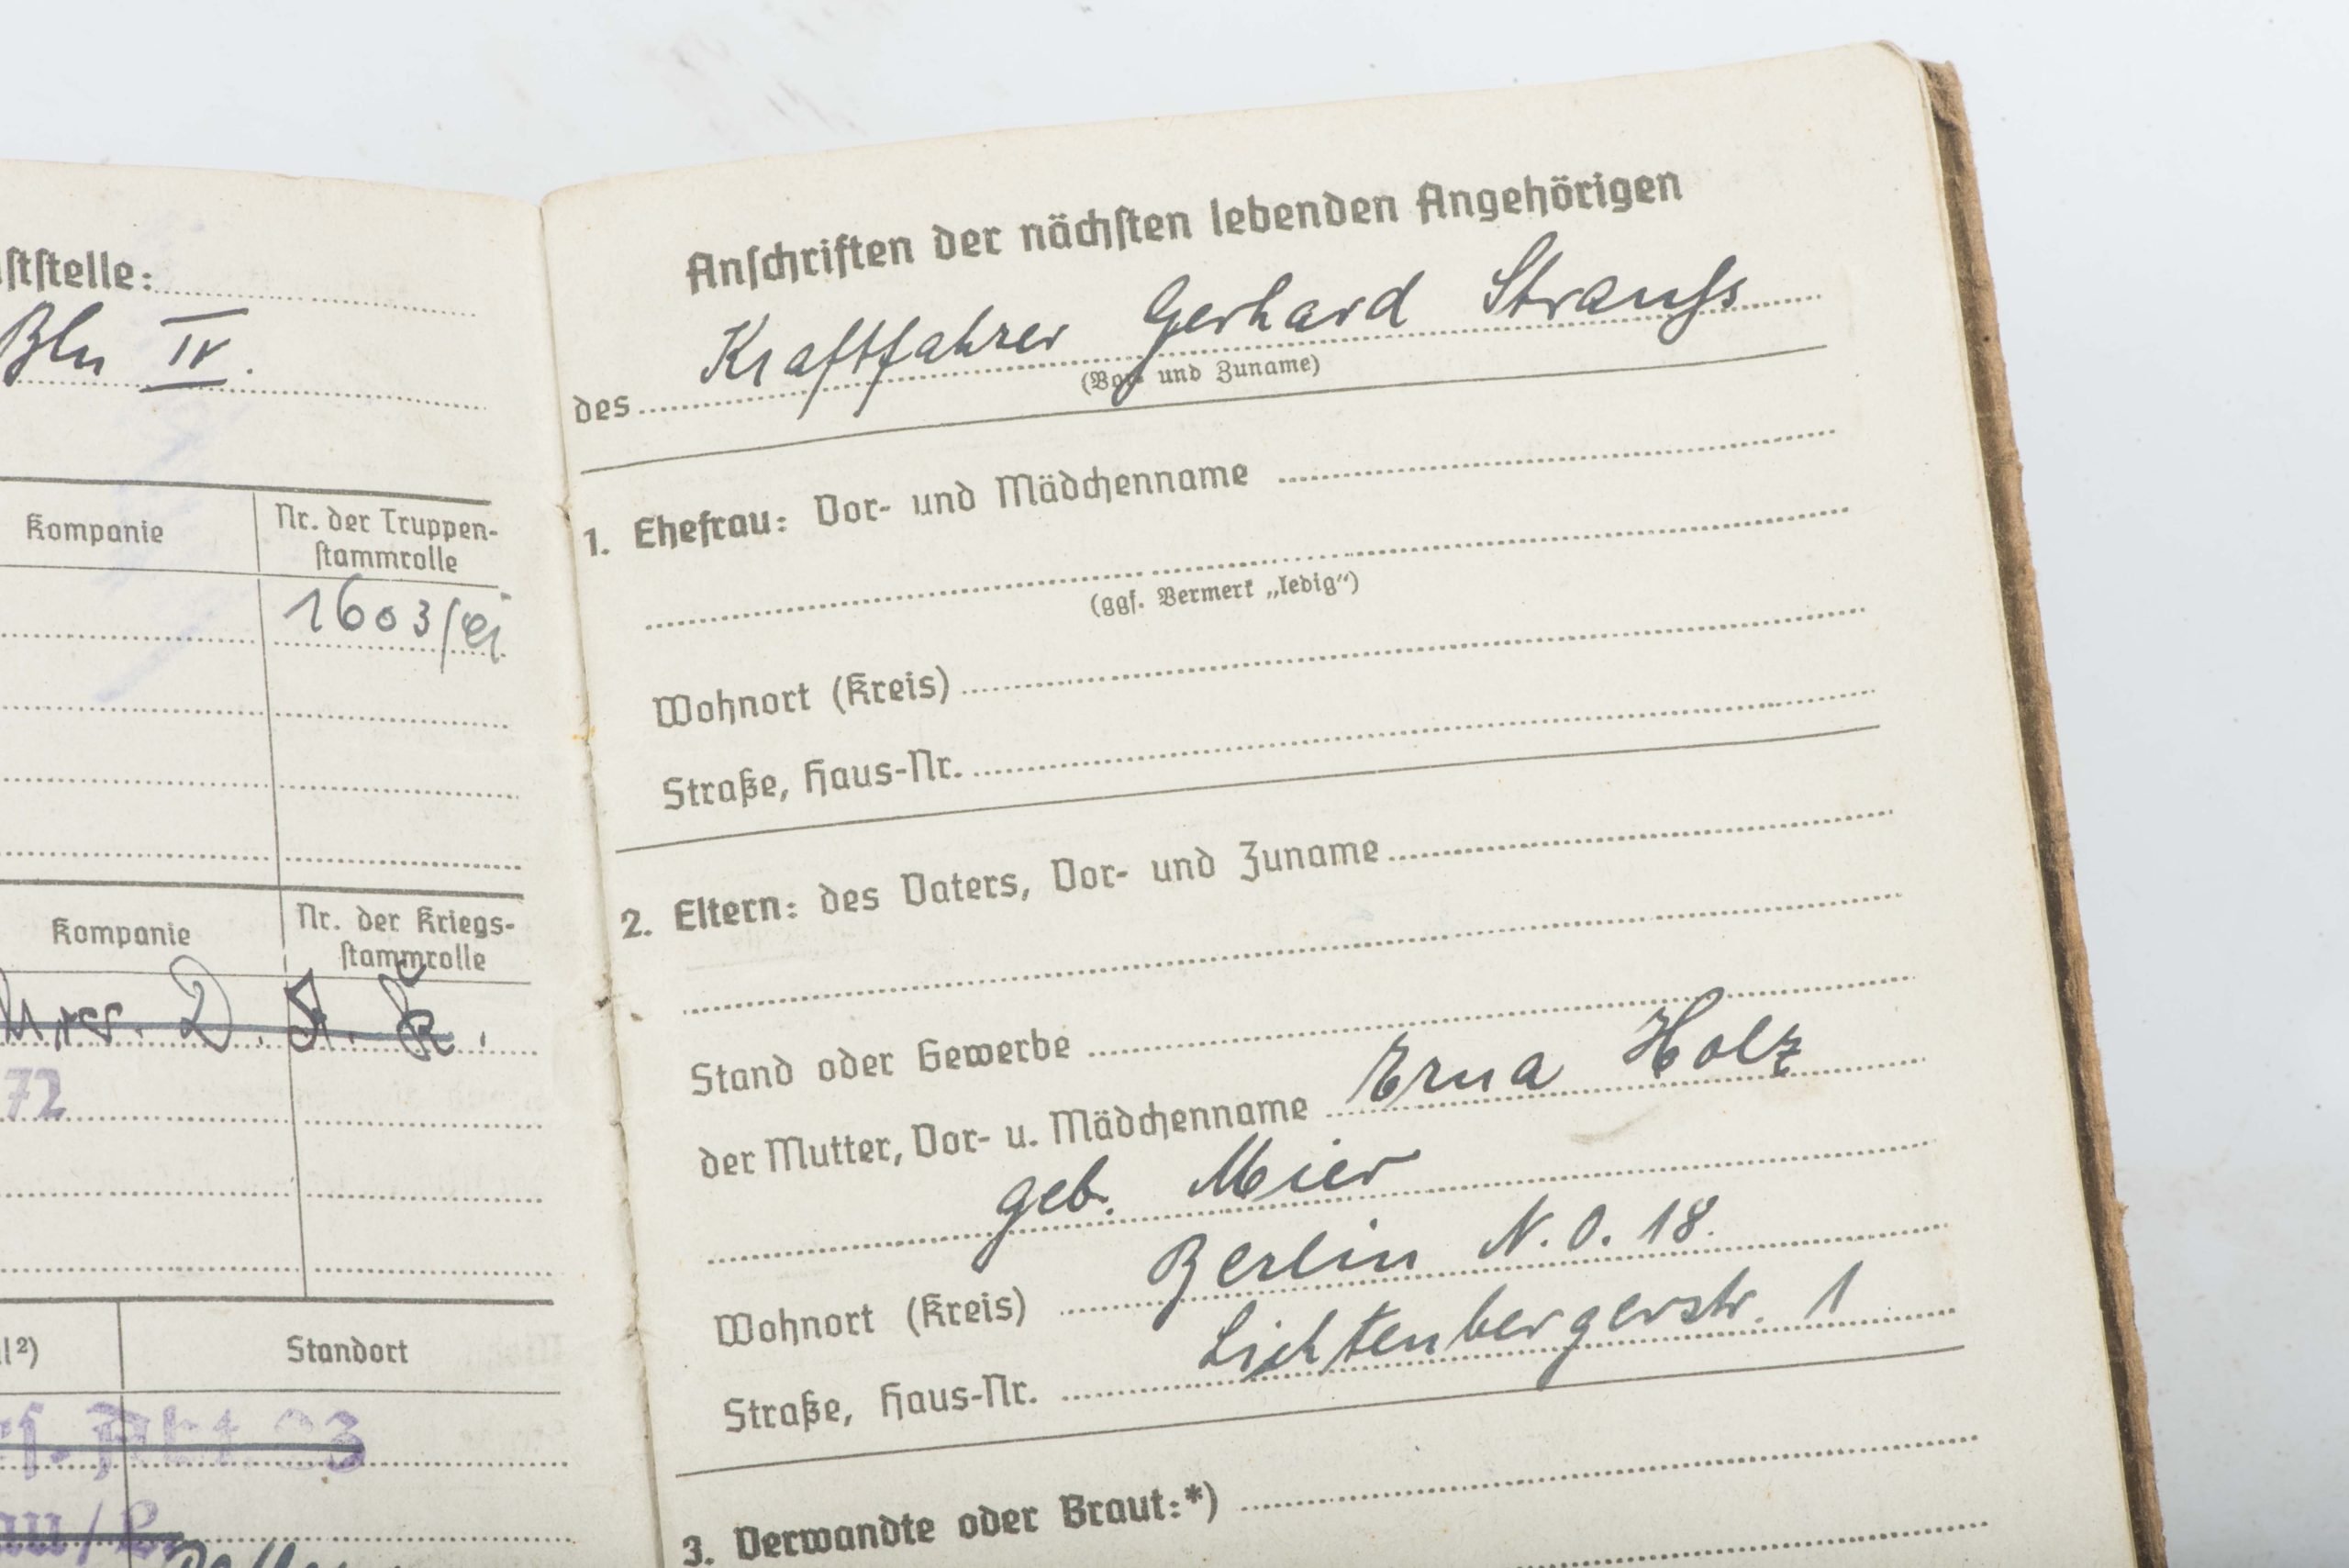 ststelle:
Bln IV.
Kompanie
Nr. der Truppen-
stammrolle
1603/
Kompanie
Nr. der Kriegs-
stammrolle
D. A. K.
72
l²)
Standort
Anschriften der nächsten lebenden Angehörigen
des Kraftfahrer Gerhard Strauß
(Vor- und Zuname)
1. Ehefrau: Vor- und Mädchenname
(ggf. Vermerk „ledig“)
Wohnort (Kreis)
Straße, Haus-Nr.
2. Eltern: des Vaters, Vor- und Zuname
Stand oder Gewerbe
der Mutter, Vor- u. Mädchenname Erna Holz
geb. Meier
Wohnort (Kreis) Berlin N.O. 18.
Straße, Haus-Nr. Lichtenbergerstr. 1
3. Verwandte oder Braut:*)